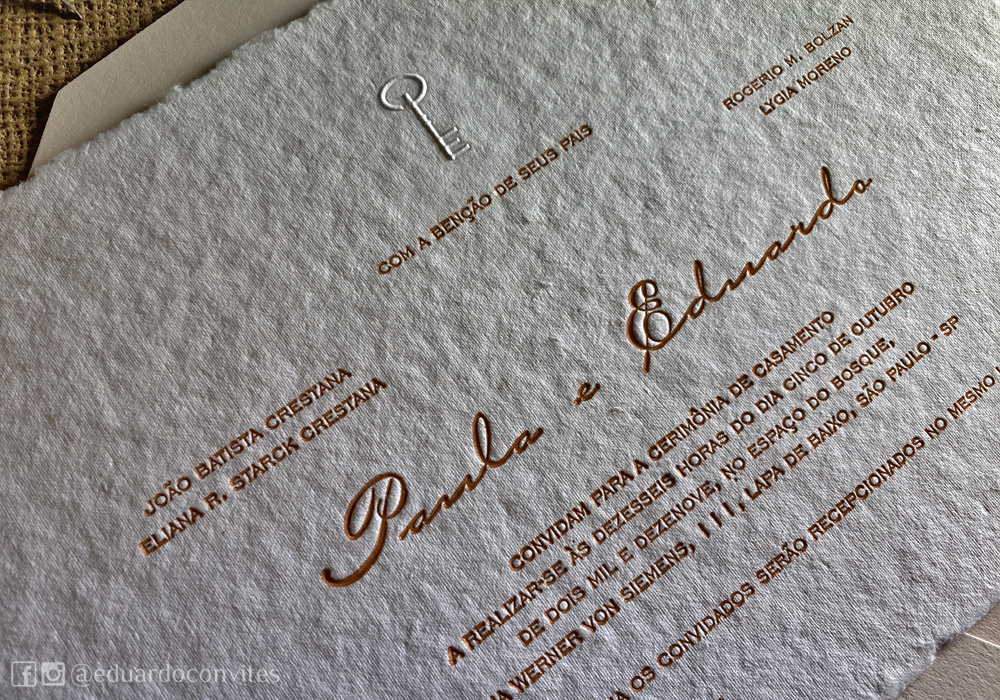 COM A BENÇÃO DE SEUS PAIS
JOÃO BATISTA CRESTANA
ELIANA R. STARCK CRESTANA
ROGERIO M. BOLZAN
LYGIA MORENO
Paula e Eduardo
CONVIDAM PARA A CERIMÔNIA DE CASAMENTO
A REALIZAR-SE ÀS DEZESSEIS HORAS DO DIA CINCO DE OUTUBRO
DE DOIS MIL E DEZENOVE, NO ESPAÇO DO BOSQUE,
WERNER VON SIEMENS, 111, LAPA DE BAIXO, SÃO PAULO - SP
OS CONVIDADOS SERÃO RECEPCIONADOS NO MESMO
@eduardoconvites